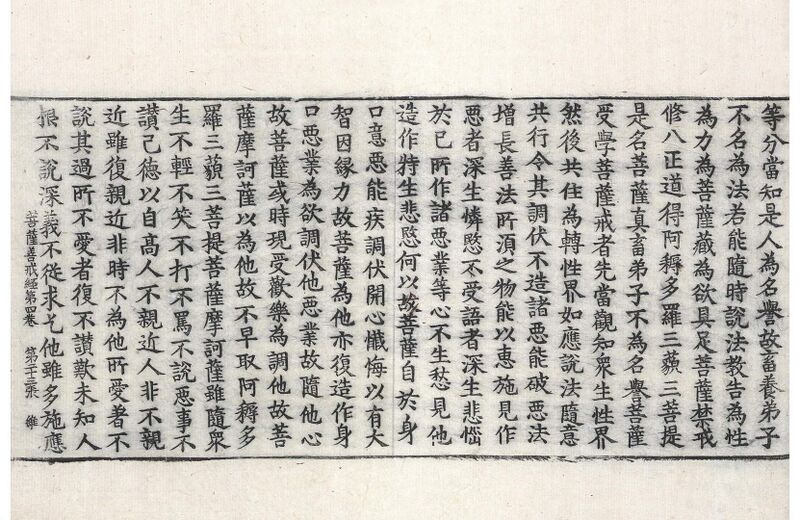 等分當知是人為名譽故畜養弟子
不名為法若能隨時說法教告為性
為力為菩薩藏為欲具足菩薩禁戒
修八正道得阿耨多羅三藐三菩提
是名菩薩真畜弟子不為名譽菩薩
受學菩薩戒者先當觀知眾生性界
然後共住為轉性界如應說法隨意
共行令其調伏不造諸惡能破惡法
增長善法所湏之物能以惠施見作
惡者深生憐愍不受語者深生悲惱
於己所作諸惡業等心不生愁見他
造作特生悲愍何以故菩薩自於身
口意惡能疾調伏開心懺悔以有大
智因緣力故菩薩為他亦復造作身
口惡業為欲調伏他惡業故隨他心
故菩薩或時現受歡樂為調他故菩
薩摩訶薩以為他故不早取阿耨多
羅三藐三菩提菩薩摩訶薩雖隨眾
生不輕不笑不打不罵不說惡事不
讚己德以自高人不親近人非不親
近雖復親近非時不為他所愛者不
說其過所不愛者復不讚歎未知人
根不說深義不從求乞他雖多施應
菩薩善戒経第四卷 第二十三張 維